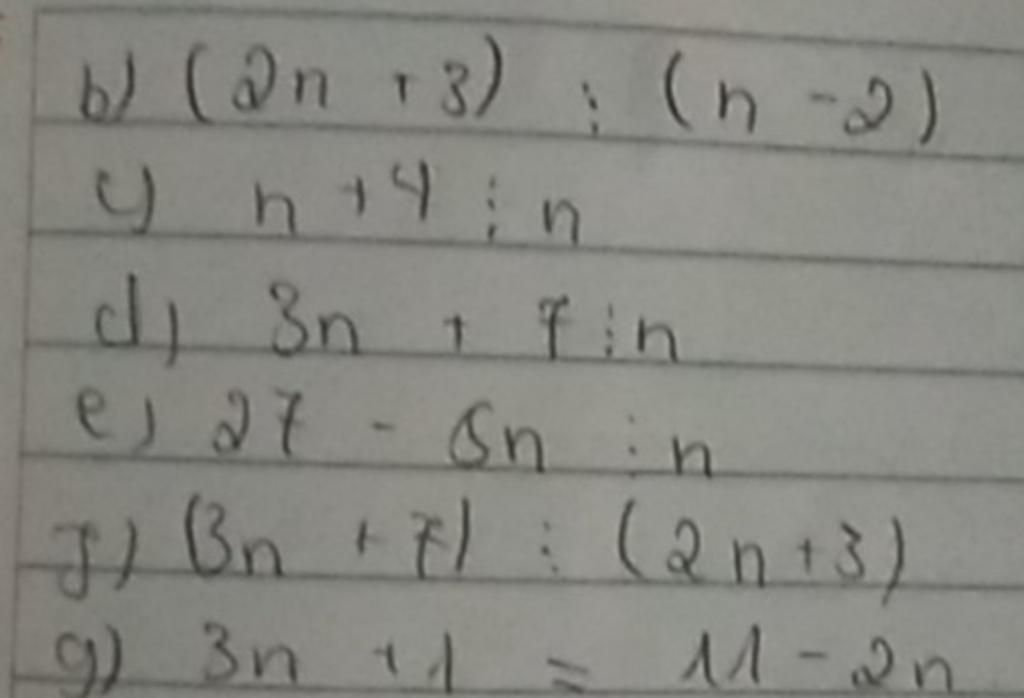 b) (2n + 3) ⋮ (n - 2)
c) n + 4 ⋮ n
d) 3n + 7 ⋮ n
e) 27 - 5n ⋮ n
f) (3n + 7) ⋮ (2n + 3)
g) 3n + 1 = 11 - 2n